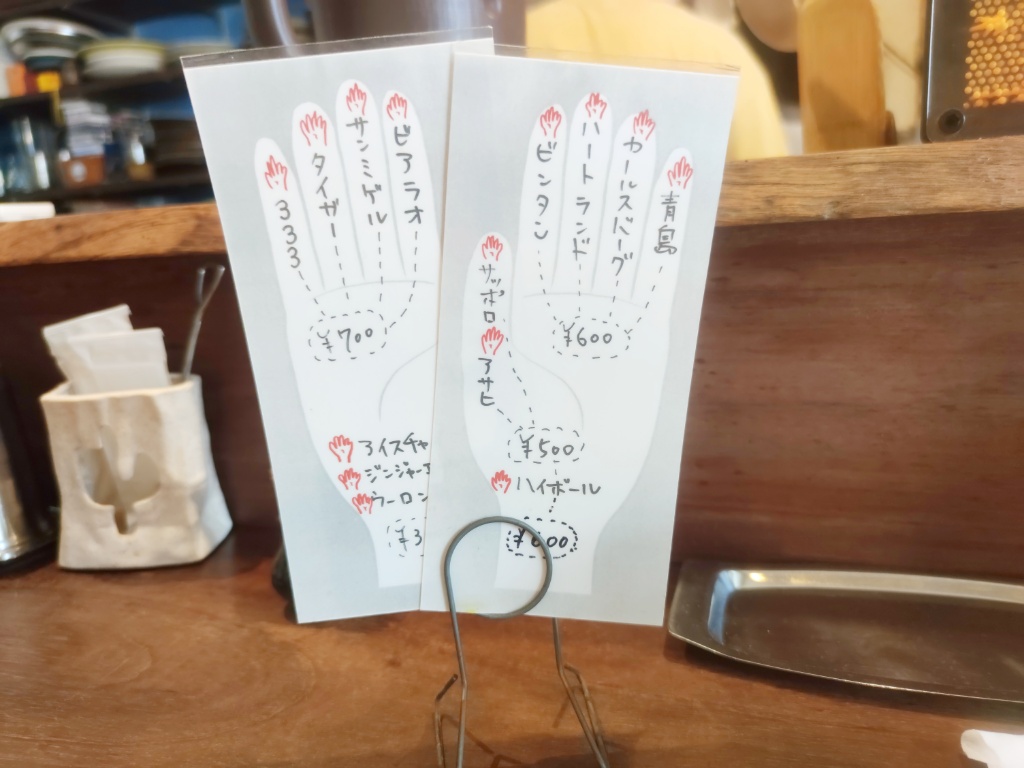 333
タイガー
サンミゲル
ビアラオ
¥700
アイスチャ
ジンジャーエ
ウーロン
¥3
ビンタン
ハートランド
カールスバーグ
青島
¥600
サッポロ
アサヒ
¥500
ハイボール
¥600